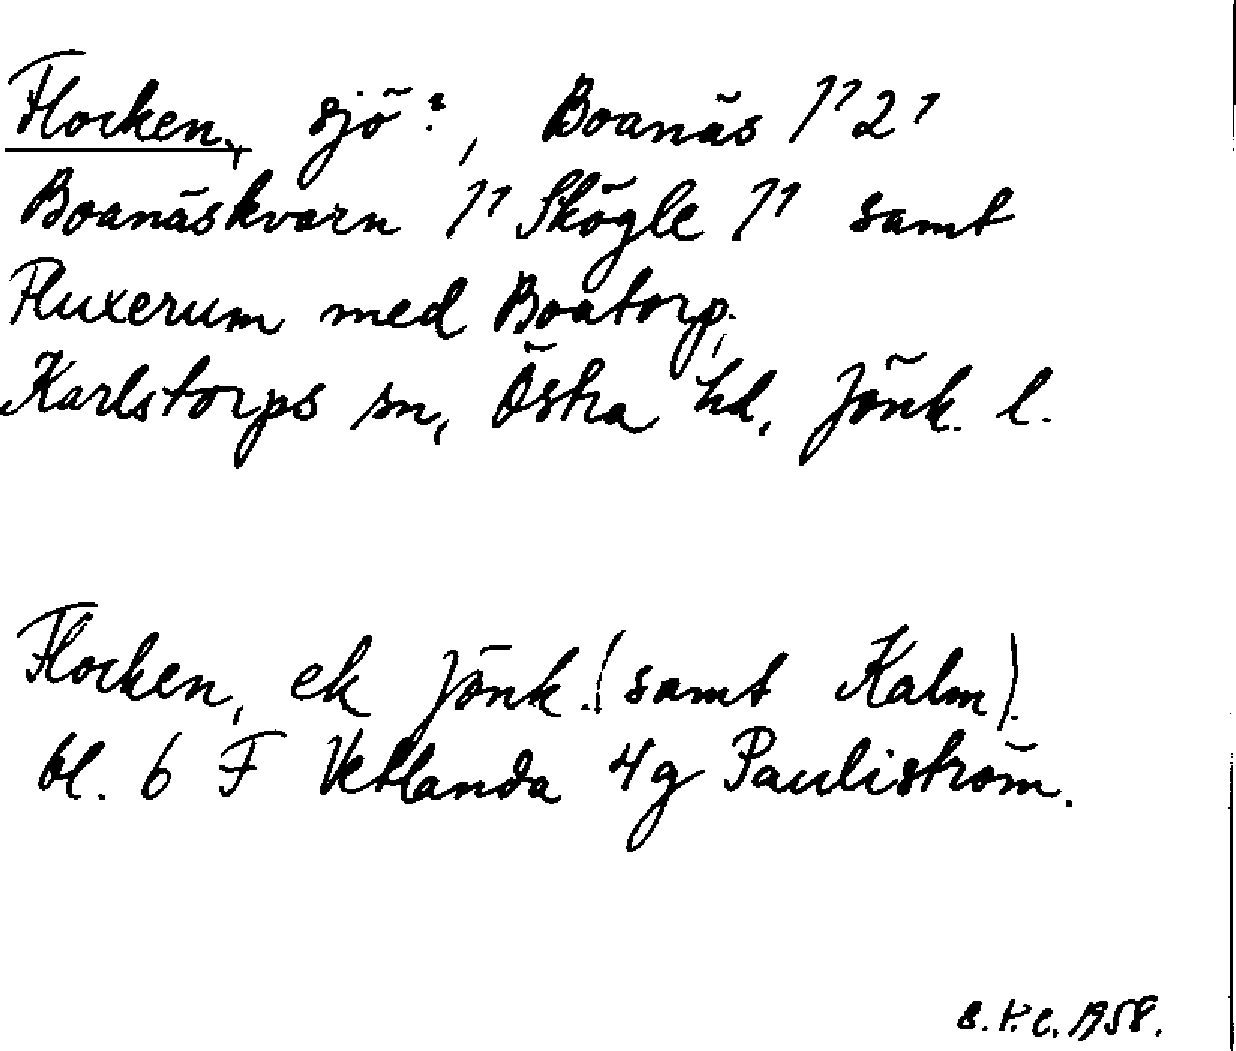 Flocken, sjö?, Boanäs 1¹ 2¹
Boanäskvarn 1¹ Skögle 1¹ samt
Fluxerum med Boatorp,
Karlstorps sn, Östra hd, Jönk. l.
Flocken, ek Jönk. (samt Kalm).
bl. 6 F Vetlanda 4g Pauliström.
1958.